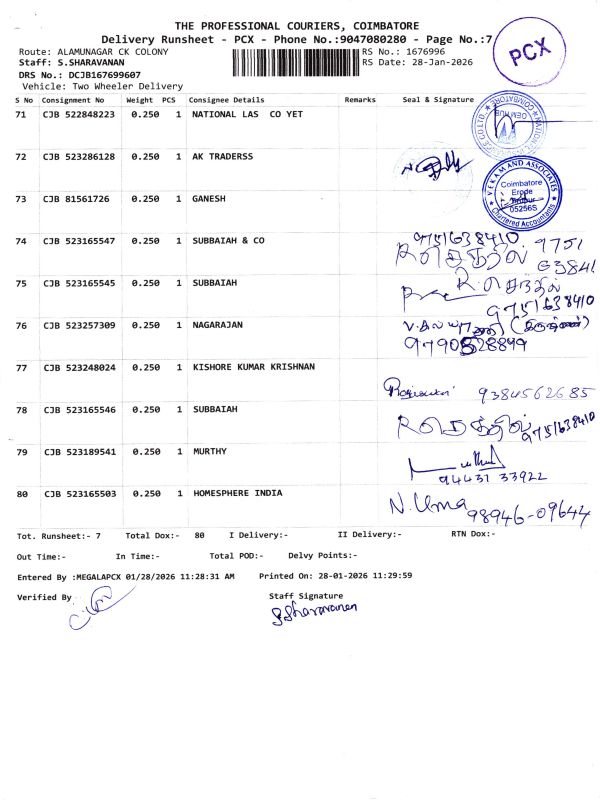 THE PROFESSIONAL COURIERS, COIMBATORE
Delivery Runsheet - PCX - Phone No.:9047080280 - Page No.:7
PCX
Route: ALAMUNAGAR CK COLONY
RS No.: 1676996
Staff: S.SHARAVANAN
RS Date: 28-Jan-2026
DRS No.: DCJB167699607
Vehicle: Two Wheeler Delivery
S No Consignment No Weight PCS Consignee Details Remarks Seal & Signature
71 CJB 522848223 0.250 1 NATIONAL LAS CO YET
72 CJB 523286128 0.250 1 AK TRADERSS
73 CJB 81561726 0.250 1 GANESH
VEKAM AND ASSOCIATES
Coimbatore
Erode
05256S
Chartered Accountants
74 CJB 523165547 0.250 1 SUBBAIAH & CO
9751638410
75 CJB 523165545 0.250 1 SUBBAIAH
R. செந்தில்
9751638410
76 CJB 523257309 0.250 1 NAGARAJAN
77 CJB 523248024 0.250 1 KISHORE KUMAR KRISHNAN
9384562685
78 CJB 523165546 0.250 1 SUBBAIAH
9751638410
79 CJB 523189541 0.250 1 MURTHY
94431 33922
80 CJB 523165503 0.250 1 HOMESPHERE INDIA
N. Uma
98946-09644
Tot. Runsheet:- 7 Total Dox:- 80 I Delivery:- II Delivery:- RTN Dox:-
Out Time:- In Time:- Total POD:- Delvy Points:-
Entered By :MEGALAPCX 01/28/2026 11:28:31 AM Printed On: 28-01-2026 11:29:59
Verified By
Staff Signature
S.Sharavanan